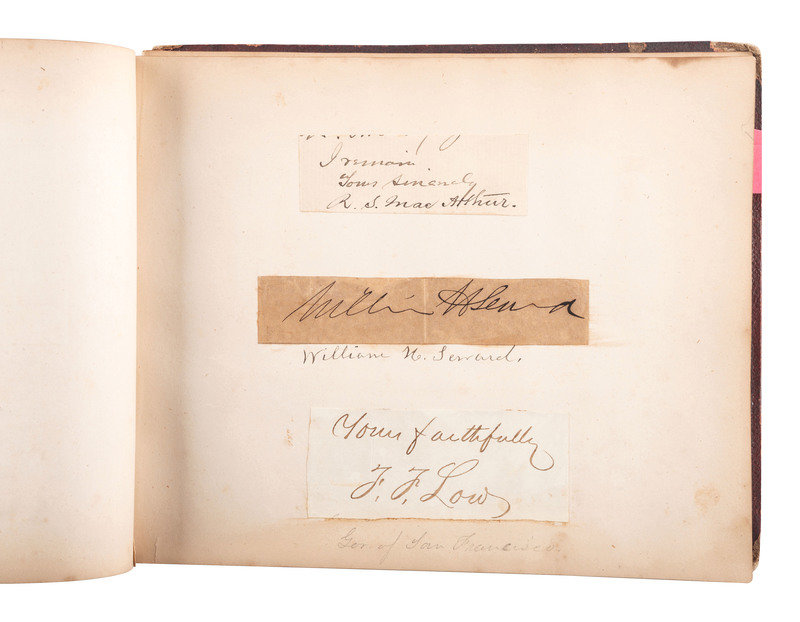 I remain
Yours sincerely
R. S. Mac Arthur.
William H Seward
William H. Seward.
Yours faithfully
F. F. Low
Gov. of San Francisco.